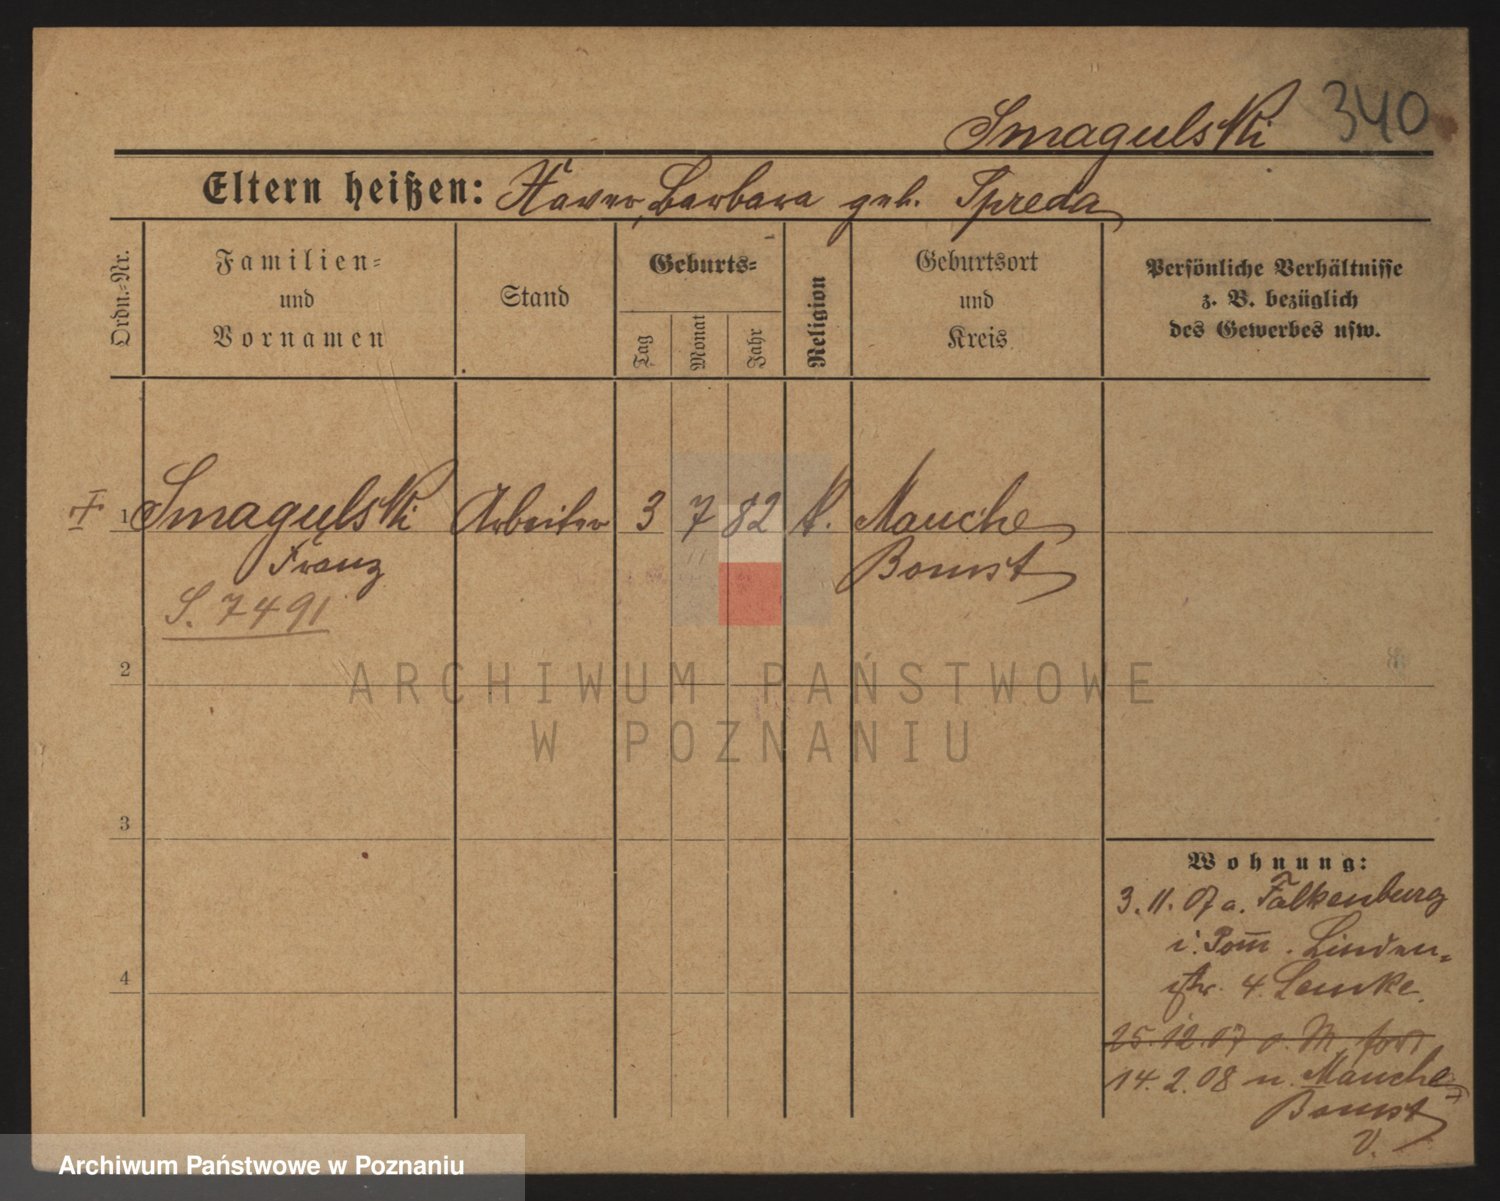 Smagulski 340
Eltern heißen: Xaver, Barbara geb. Spreda
Ordn.-Nr.
Familien-
und
Vornamen
Stand
Geburts-
Tag
Monat
Jahr
Religion
Geburtsort
und
Kreis
Persönliche Verhältnisse
z. B. bezüglich
des Gewerbes usw.
1 Smagulski Arbeiter 3 7 82 k. Mauche
Franz Bomst
S. 7491
2
3
4
Wohnung:
3.11.07 a. Falkenburg
i. Pom̅. Linden-
str. 4. Lemke.
25.12.07 o. M. fort
14.2.08 n. Mauche
Bomst
V.
ARCHIWUM PAŃSTWOWE
W POZNANIU
Archiwum Państwowe w Poznaniu